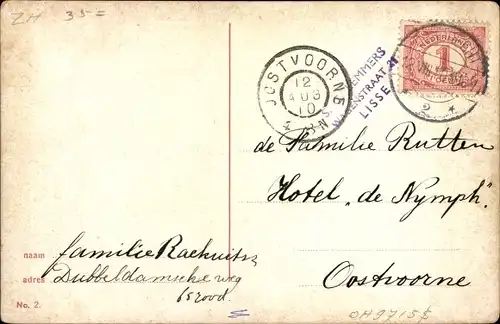 ZH 35=
OOSTVOORNE
12
AUG
10
LEMMERS
LISSE
NEDERLAND
1
2
de Familie Rutten
Hotel „de Nymph"
Oostvoorne
naam familie
adres Dubbeldamsche weg
rood.
No. 2.
OH 9715